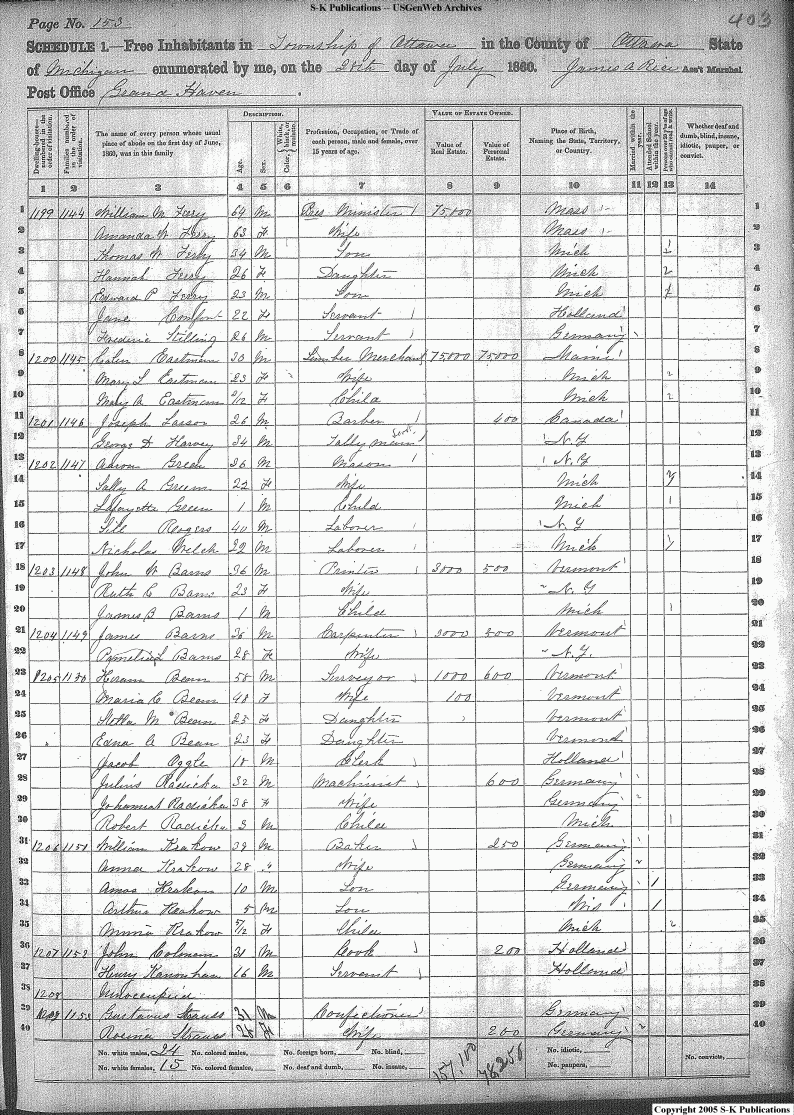 S-K Publications -- USGenWeb Archives
Page No. 153
403
SCHEDULE 1.—Free Inhabitants in Township of Ottawa in the County of Ottawa State
of Michigan enumerated by me, on the 28th day of July 1860. James A Rice Ass't Marshal
Post Office Grand Haven.
DESCRIPTION.
VALUE OF ESTATE OWNED.
Dwelling-houses—numbered in the order of visitation.
Families numbered in the order of visitation.
The name of every person whose usual place of abode on the first day of June, 1860, was in this family
Age.
Sex.
Color, White, black, or mulatto.
Profession, Occupation, or Trade of each person, male and female, over 15 years of age.
Value of Real Estate.
Value of Personal Estate.
Place of Birth, Naming the State, Territory, or Country.
Married within the year.
Attended School within the year.
Persons over 20 y'rs of age who cannot read & write.
Whether deaf and dumb, blind, insane, idiotic, pauper, or convict.
1 2 3 4 5 6 7 8 9 10 11 12 13 14
1 1199 1144 William M Ferry 64 M Pres Minister 75000 Mass 1
2 Amanda W Ferry 63 F Wife Mass 2
3 Thomas W Ferry 34 M Son Mich 3
4 Hannah Ferry 26 F Daughter Mich 4
5 Edward P Ferry 23 M Son Mich 5
6 Jane Comfort 22 F Servant Holland 6
7 Frederic Stilling 26 M Servant Germany 7
8 1200 1145 Eastman 30 M Lumber Merchant 75000 75000 8
9 Mary L Eastman 23 F Wife Mich 9
10 Mary A Eastman /12 F Child Mich 10
11 1201 1146 Joseph Lasson 26 M Barber 400 Canada 11
12 George D Harvey 34 M Tallyman N.Y 12
13 1202 1147 Aaron Green 36 M Mason N.Y 13
14 Sally A Green 22 F Wife Mich 14
15 Lafayette Green 1 M Child Mich 15
16 Rogers 40 M Laborer N.Y 16
17 Nicholas Welch 22 M Laborer Mich 17
18 1203 1148 John W Barns 36 M Printer 3000 500 Vermont 18
19 Ruth C Barns 23 F Wife N.Y 19
20 James B Barns 1 M Child Mich 20
21 1204 1149 James Barns 36 M Carpenter 3000 500 Vermont 21
22 Pamelia L Barns 28 F Wife N.Y. 22
23 1205 1150 Hiram Bean 58 M Surveyor 1000 600 Vermont 23
24 Maria C Bean 48 F Wife 100 Vermont 24
25 M Bean 25 F Daughter Vermont 25
26 Edna A Bean 23 F Daughter Vermond 26
27 Jacob Oggle 18 M Clerk Holland 27
28 Julius Radicka 32 M Machinist 600 Germany 28
29 Radicka 38 F Wife Germany 29
30 Robert Radicka 3 M Child Mich 1 30
31 1206 1151 William Krakow 39 M Baker 250 Germany 31
32 Anna Krakow 28 " Wife Germany 32
33 Amos Krakow 10 M Son Germany 1 33
34 Arthur Krakow 5 M Son Wis 1 34
35 Krakow 5/12 F Child Mich 35
36 1207 1152 John Colmann 31 M Cook 200 Holland 36
37 Henry 16 M Servant Holland 37
38 1208 Unoccupied 38
39 1209 1153 Gustavus Strauss 31 M Confectioner Germany 39
40 Rosina Strauss 26 F Wife 200 Germany 40
No. white males, 24 No. colored males, No. foreign born, No. blind, 157,100 78,250 No. idiotic, No. convicts,
No. white females, 15 No. colored females, No. deaf and dumb, No. insane, No. paupers,
Copyright 2005 S-K Publications